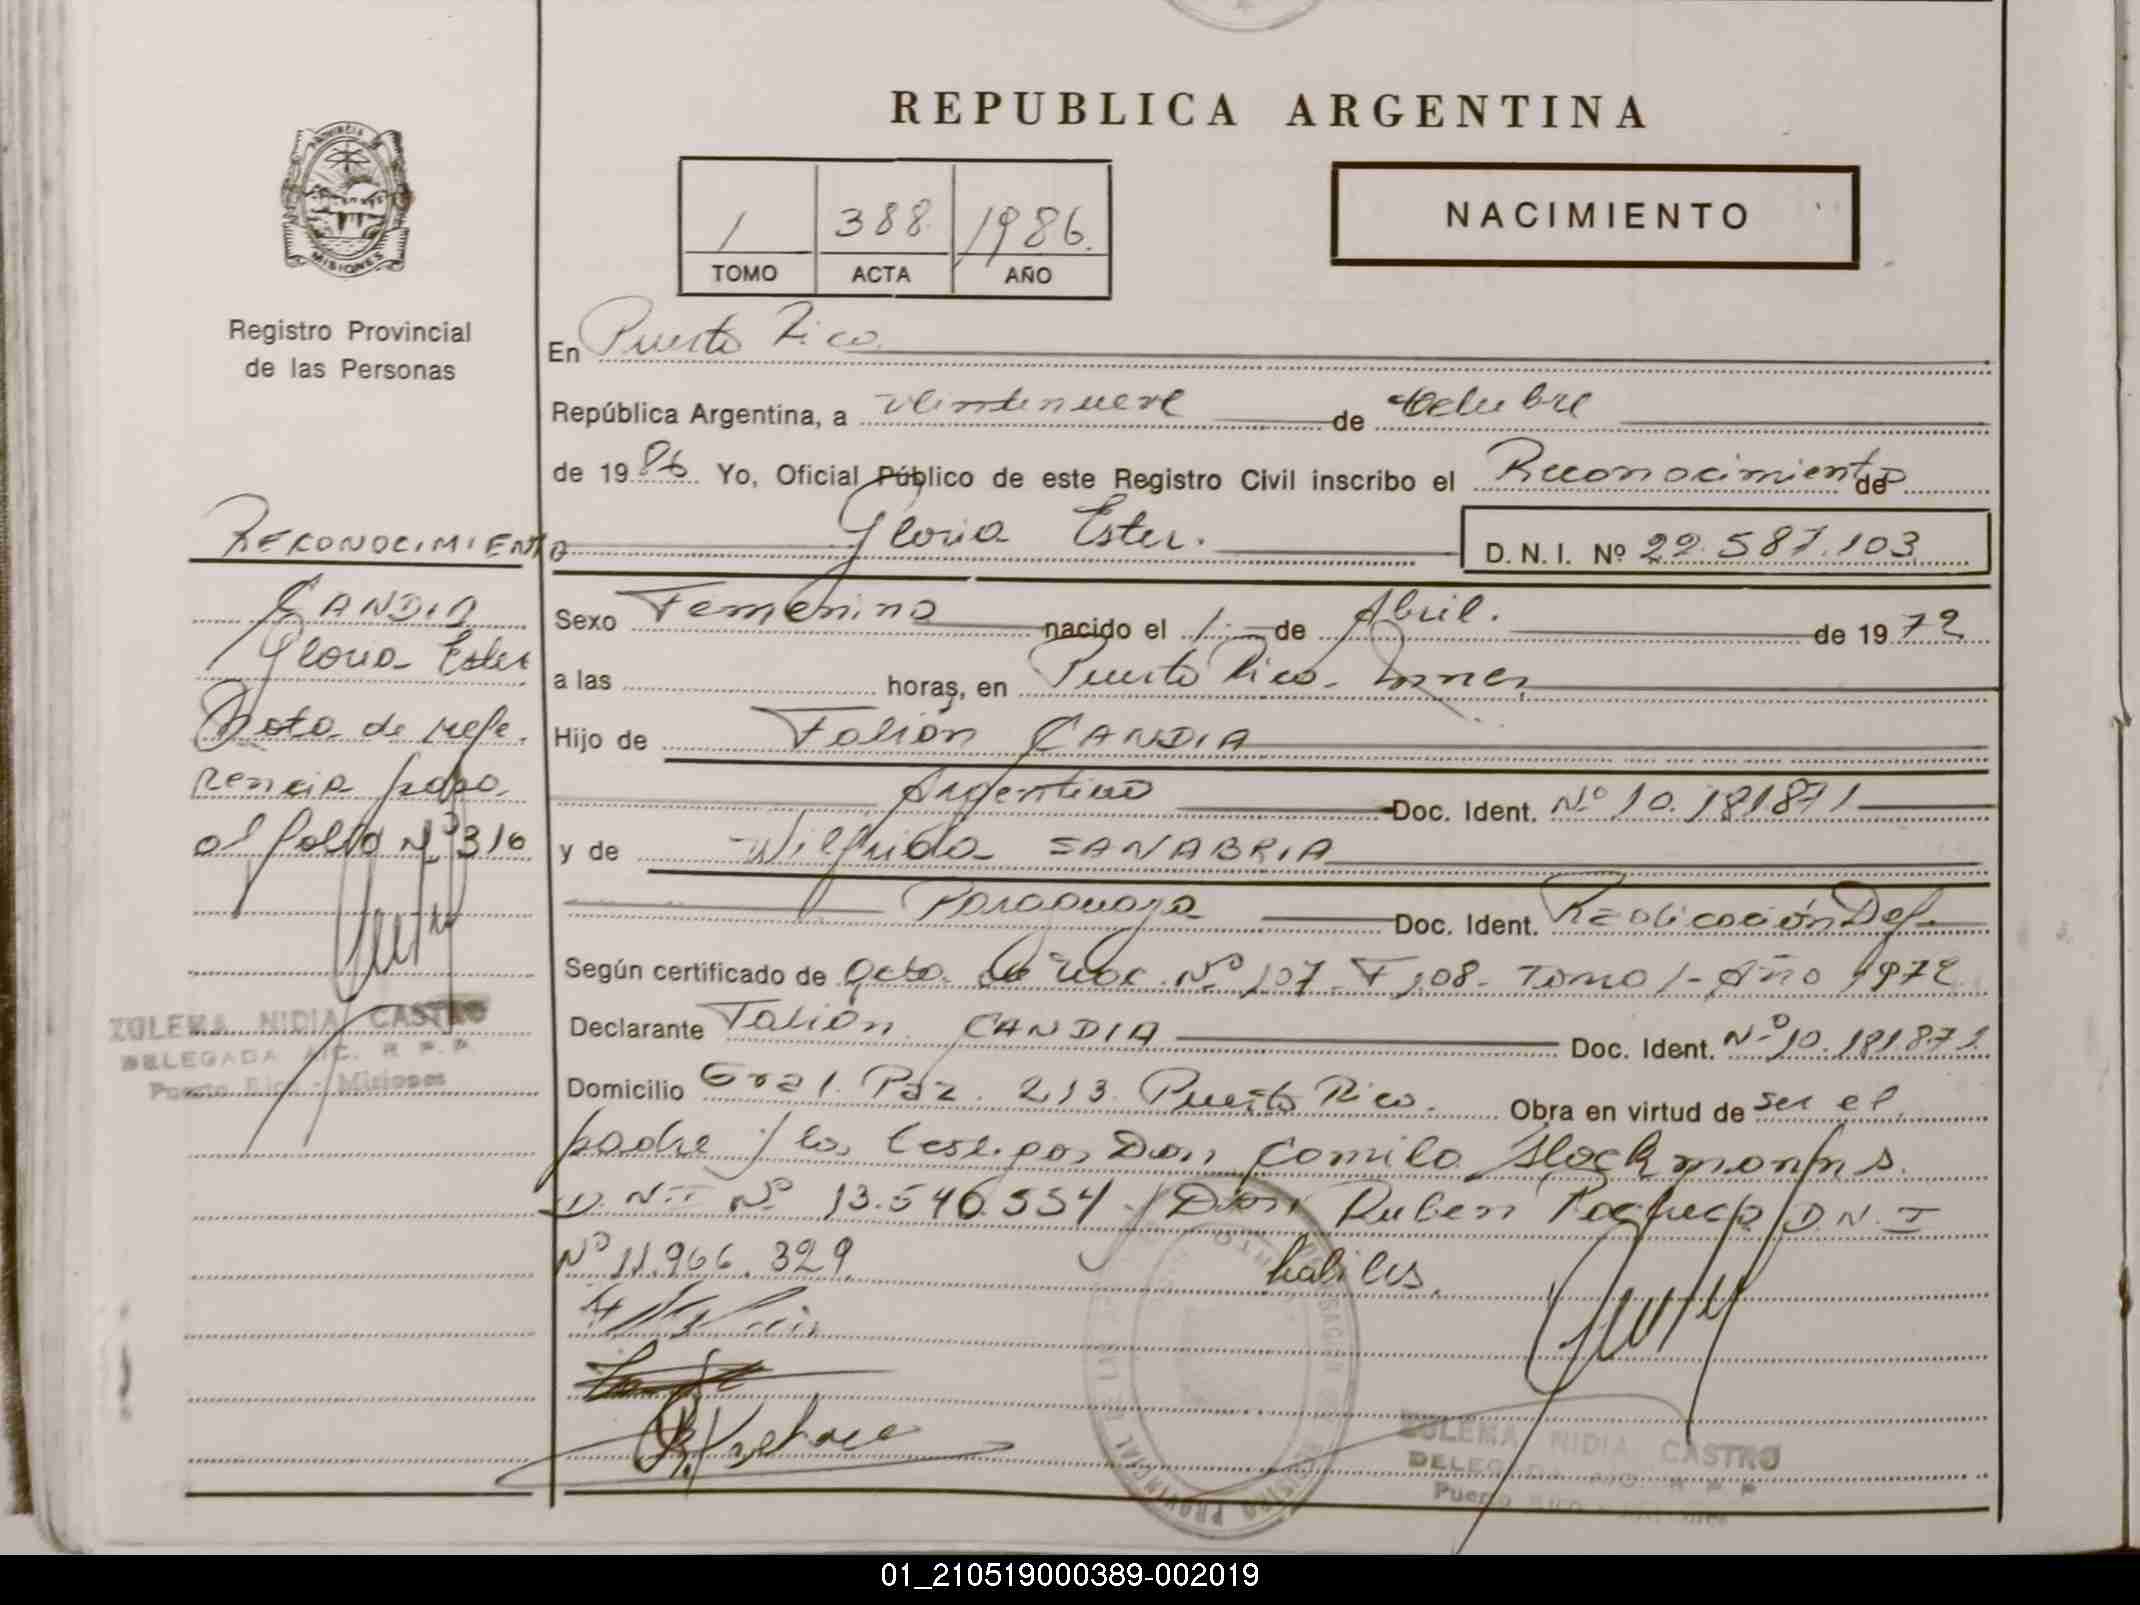 REPUBLICA ARGENTINA
PROVINCIA DE
MISIONES
Registro Provincial
de las Personas
1 388 1986.
TOMO ACTA AÑO
NACIMIENTO
En Puerto Rico.
República Argentina, a veintinueve de Octubre
de 1986 Yo, Oficial Público de este Registro Civil inscribo el Reconocimiento de
Gloria Ester. D. N. I. Nº 22.587.103
Sexo Femenino nacido el 1 de Abril. de 1972
a las horas, en Puerto Rico.
Hijo de CANDIA
Argentino Doc. Ident. Nº 10.181871
y de Wilfrida SANABRIA
Paraguaya Doc. Ident.
Según certificado de Acta de Nac. Nº 107 F 108 - Tomo 1 - Año 1972
Declarante CANDIA Doc. Ident. Nº 10.181.871
Domicilio Gral. Paz. 213 Puerto Rico. Obra en virtud de ser el
padre y los testigos Don Camilo
D.N.I Nº 13.540.554 y Don Ruben Pacheco D.N.I
Nº 11.966.329 habiles.
RECONOCIMIENTO
CANDIA
Gloria Ester
Nota de refe.
rencia pasa
al folio Nº 316
ZULEMA NIDIA CASTRO
DELEGADA A/C. R P. P.
Puerto Rico - Misiones
ZULEMA NIDIA CASTRO
DELEGADA A/C. R P P
01_210519000389-002019